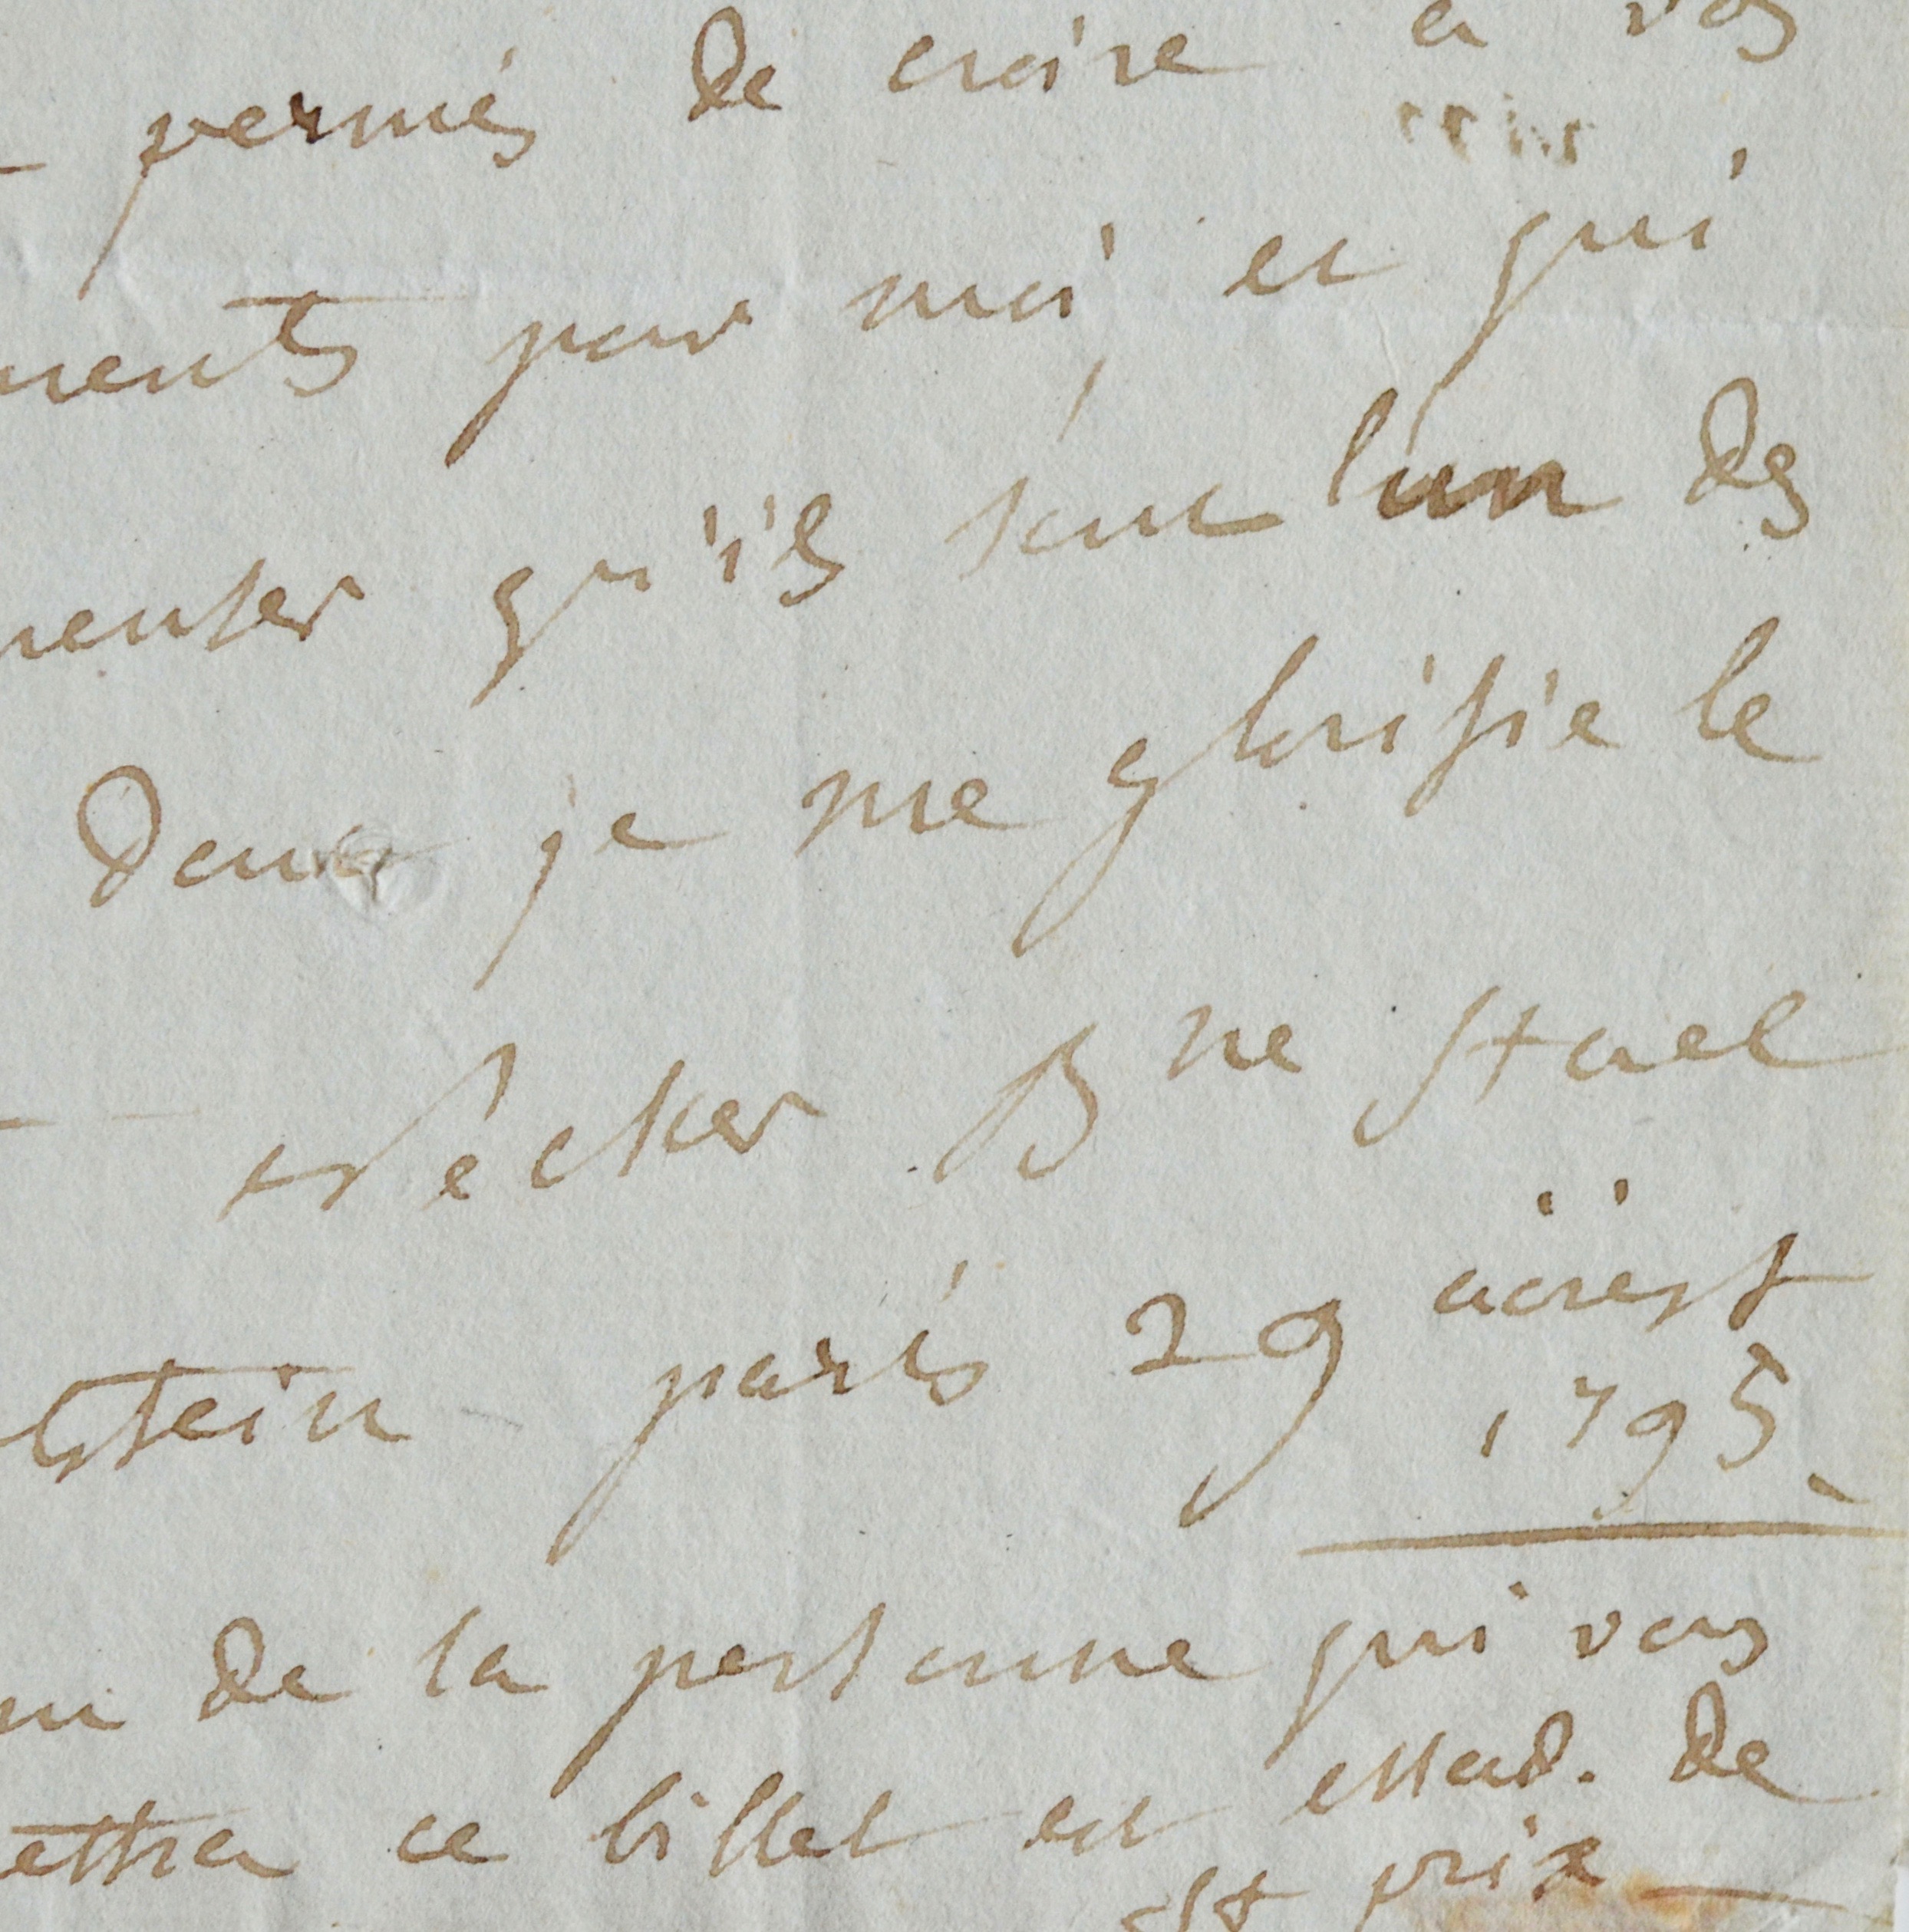 permis de croire a vos
ments pour moi, et qui
qu'ils sont l'un des
dont je me glorifie le
Necker Bne Stael
lstein paris 29 aoust
1795.
de la personne qui vous
ettra ce billet est de
st prix